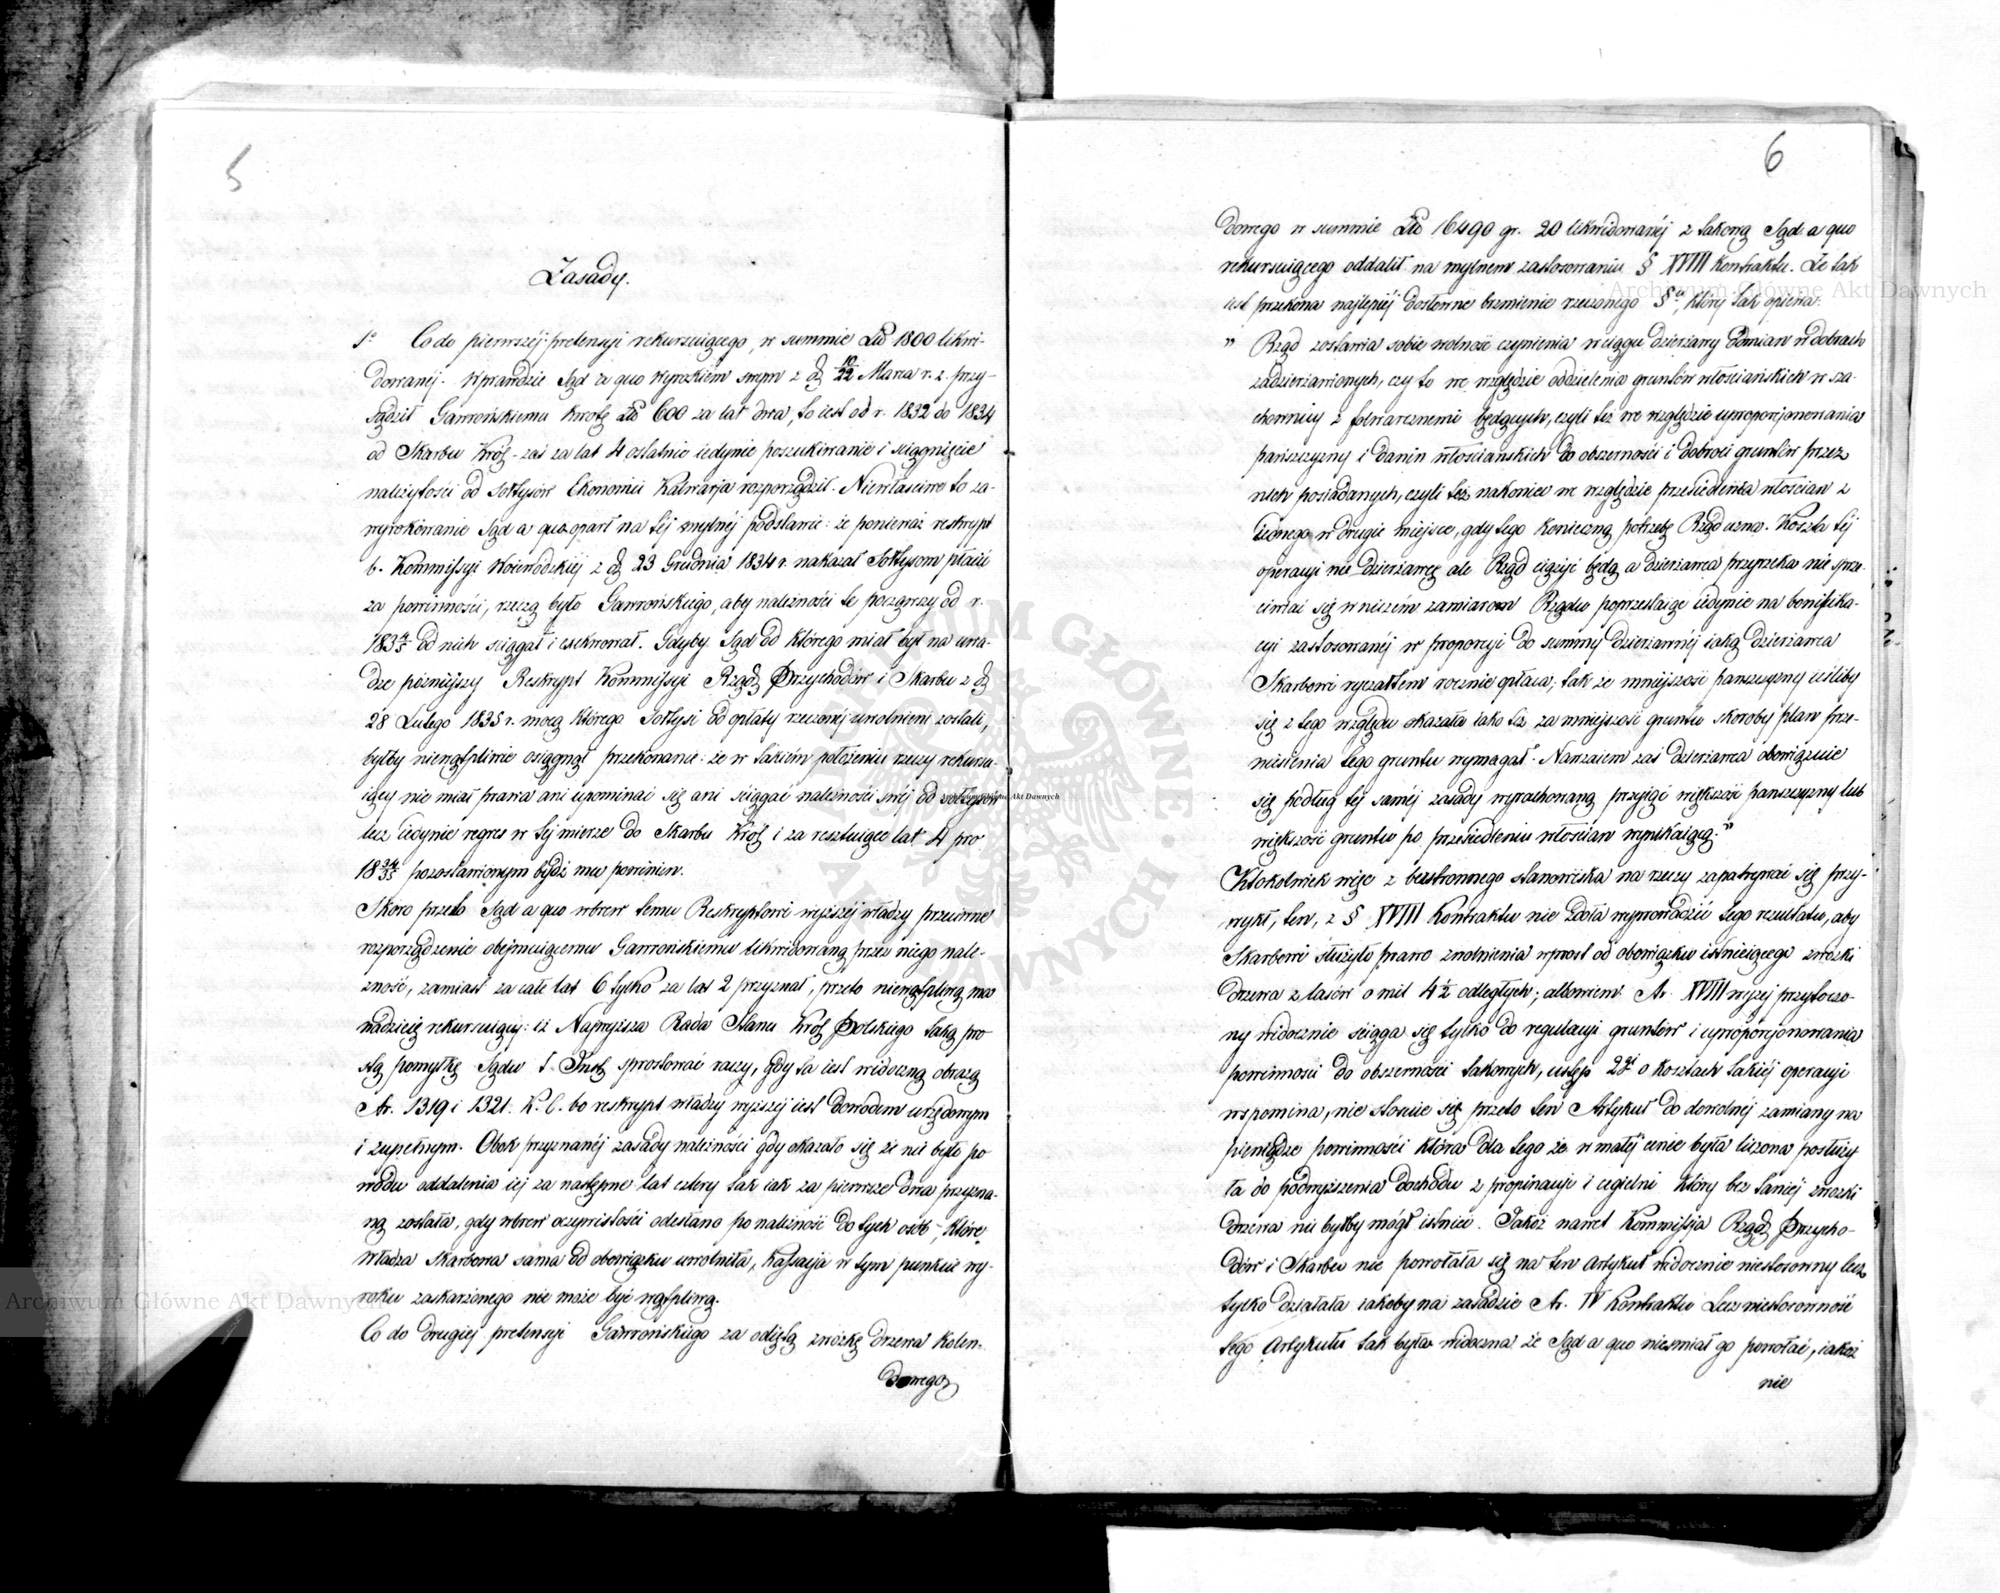 5
Zasady.
1º Co do pierwszéj pretensyi rekurruiącego, w summie Złp 1800 likwi-
dowanéj. Wprawdzie Sąd a quo wyrokiem swym z d. 10/22 Marca r. z. przy-
sądził Gawrońskiemu kwotę Złp 600 za lat dwa, to iest od r. 1832 do 1834
od Skarbu Król. zaś za lat 4 ostatnie iedynie poszukiwanie i ściągnięcie
należytości od Sołtysów Ekonomii Kalwarja rozporządził. Niewłaściwe to za-
wyrokowanie Sąd a quo oparł na téj mylnéj podstawie: że ponieważ reskrypt
b. Kommissyi Woiewódzkiéj z d. 23 Grudnia 1834 r. nakazał Sołtysom płacić
za powinności, rzeczą było Gawrońskiego, aby należności te począwszy od r.
183 4/5 od nich ściągał i exekwował. Gdyby Sąd od którego miał był na uwa-
dze pózniejszy Reskrypt Kommissyi Rządz. Przychodów i Skarbu z d.
28 Lutego 1835 r. mocą którego Sołtysi od opłaty rzeczonéj uwolnieni zostali,
byłby niewątpliwie osiągnął przekonanie: że w takiém położeniu rzeczy rekurru-
iący nie miał prawa ani upominać się ani ściągać należności swéj od sołtysów
lecz iedynie regres w téj mierze do Skarbu Król. i za resztuiące lat 4 pro
18 34/35 pozostawionym bydź mu powinien.
Skoro przeto Sąd a quo wbrew temu Reskryptowi wyższéj władzy przeciwne
rozporządzenie obejmuiącemu Gawrońskiemu likwidowaną przez niego nale-
żność, zamiast za całe lat 6 tylko za lat 2 przyznał, przeto niewątpliwą ma
nadzieię rekurruiący: iż Najwyższa Rada Stanu Król. Polskiego taką pro
stą pomyłkę Sądu I Inst. sprostować raczy, gdy ta iest widoczną obrazą
Ar. 1319 i 1321. K. C. bo reskrypt władzy wyższéj iest dowodem urzędowym
i zupełnym. Obok przyznanéj zasady należności gdy okazało się że nie było po
wodu oddalenia iéj za następne lat cztery tak iak za pierwsze dwa przyzna-
ną została, gdy wbrew oczywistości odesłano po należność do tych osób, które
władza Skarbowa sama od obowiązku uwolniła, Kassacja w tym punkcie wy-
roku zaskarżonego nie może być wątpliwą.
Co do drugiéj pretensyi Gawrońskiego za odiętą zwózkę drzewa kolen-
dowego
6
dowego w summie Złp 16490 gr. 20 likwidowanéj z takową Sąd a quo
rekurruiącego oddalił na mylnem zastosowaniu § XVIII kontraktu. Że tak
iest przekona najlepiéj dosłowne brzmienie rzeczonego §u, który tak opiewa:
„ Rząd zostawia sobie wolność czynienia w ciągu dzierżawy odmian w dobrach
zadzierżawionych, czy to we względzie oddzielenia gruntów włościańskich w sza-
chownicy z folwarcznemi będących, czyli też we względzie uproporcjonowania
pańszczyzny i danin włościańskich do obszerności i dobroci gruntów przez
nich posiadanych, czyli też nakoniec we względzie przesiedlenia włościan z
iednego w drugie miejsce, gdy tego konieczną potrzebę Rząd uzna. Koszta téj
operacyi nie dzierżawcę ale Rząd ciążyć będą a dzierżawca przyrzeka nie sprze-
ciwiać się w niczém zamiarom Rządu poprzestaiąc iedynie na bonifika-
cyi zastosowanéj w proporcyi do summy dzierżawnéj iaką dzierżawca
Skarbowi ryczałtem rocznie opłaca, tak że mniejszość pańszczyzny ieśliby
się z tego względu okazała iako też za mniejszość gruntu skoroby plan prze-
niesienia tego gruntu wymagał. Nawzaiem zaś dzierżawca obowiązuie
się podług téj saméj zasady wyrachowaną przyiąć większość pańszczyzny lub
większość gruntu po przesiedleniu włościan wynikaiącą."
Ktokolwiek więc z bezstronnego stanowiska na rzeczy zapatrywać się przy-
wykł, ten, z § XVIII Kontraktu nie zdoła wyprowadzić tego rezultatu, aby
Skarbowi służyło prawo zwolnienia wprost od obowiązku istnieiącego zwózki
drzewa z lasów o mil 4 1/2 odległych; albowiem Ar. XVIII wyżej przytoczo-
ny widocznie ściąga się tylko do regulacyi gruntów i uproporcjonowania
powinności do obszerności takowych, ustęp 2gi o kosztach takiéj operacyi
wspomina, nie stosuie się przeto ten Artykuł do dowolnéj zamiany na
pieniądze powinności która dla tego że w małéj cenie była liczona posłuży
ła do podwyższenia dochodu z propinacyi i cegielni który bez taniéj zwózki
drzewa nie byłby mógł istnieć. Jakoż nawet Kommissja Rządz. Przycho-
dów i Skarbu nie powołała się na ten artykuł widocznie niestosowny lecz
tylko działała iakoby na zasadzie Ar. IV Kontraktu Lecz niestosowność
tego Artykułu tak była widoczna że Sąd a quo nieśmiał go powołać, iakoż
nie